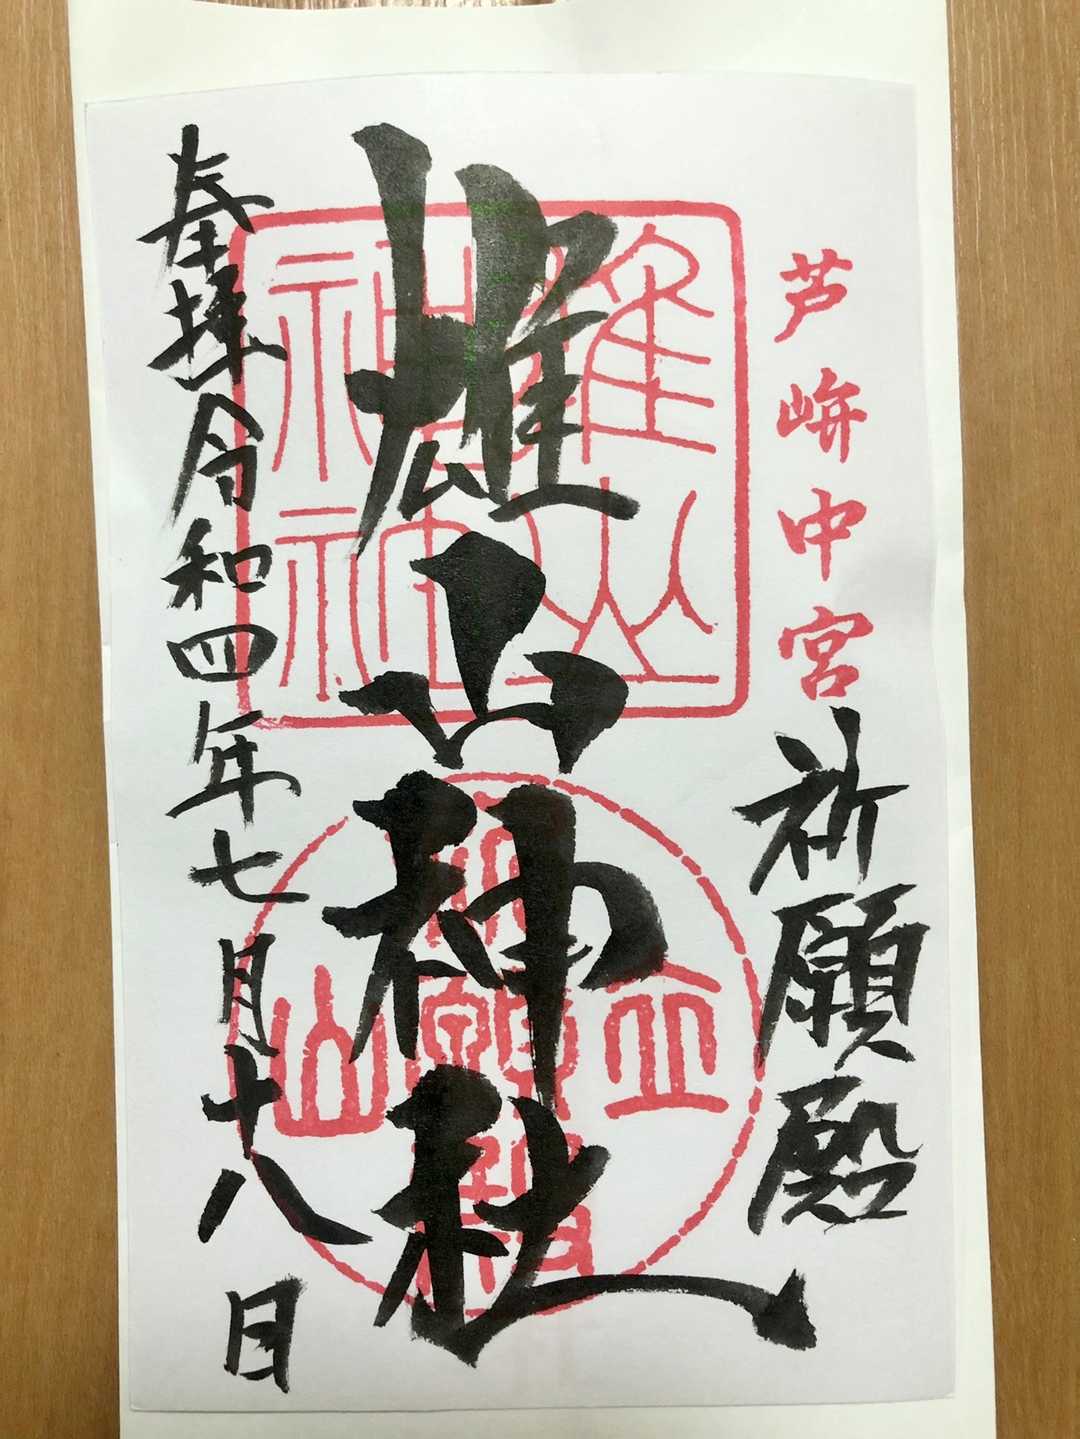 芦峅中宮
祈願殿
雄山神社
奉拝令和四年七月十八日
雄山
神社
立
山